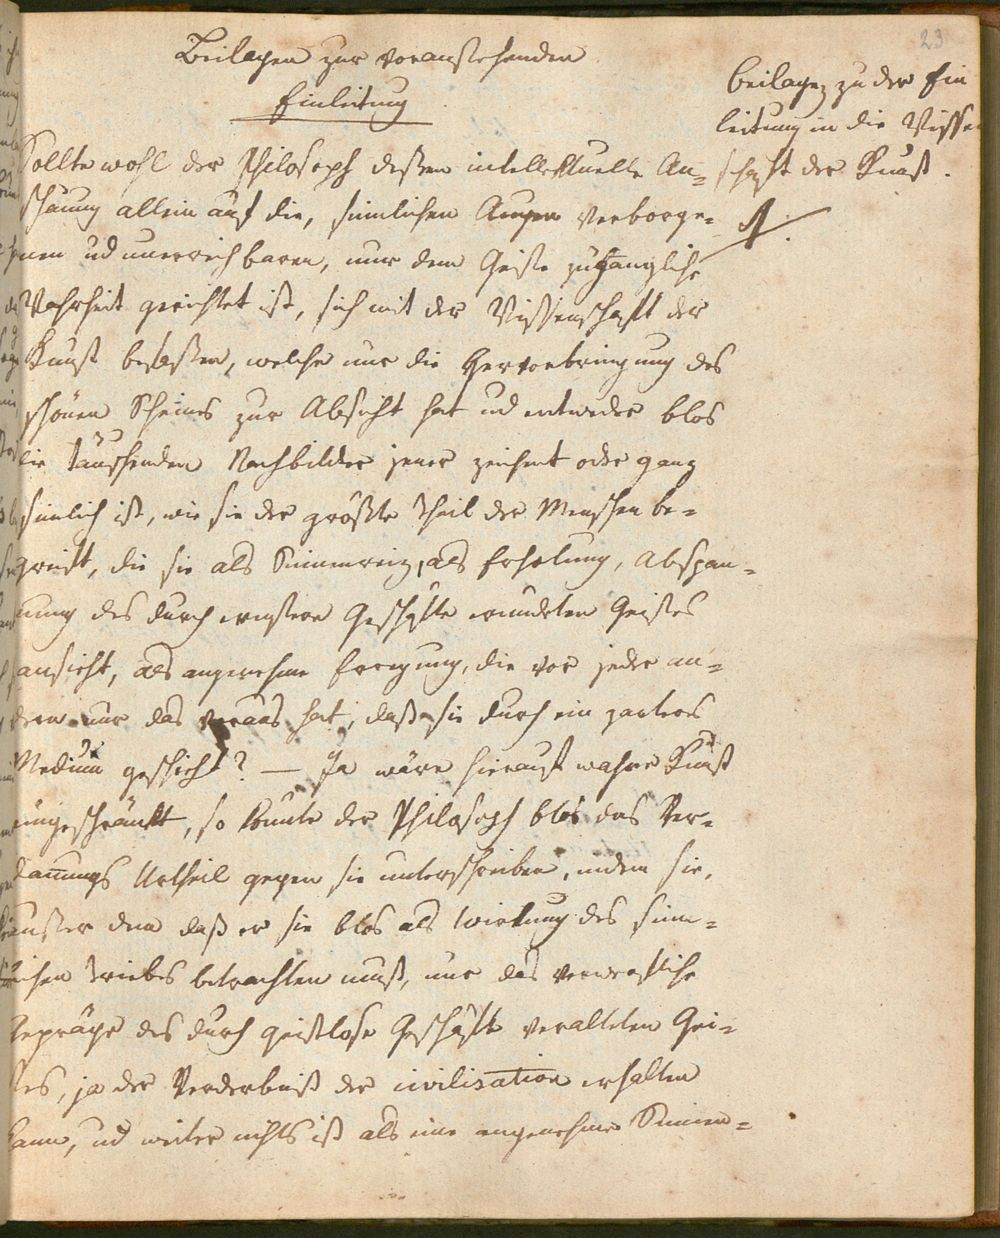 23
Beilagen zur voranstehenden
Einleitung
Beilagen zu der Ein
leitung in die Wissen
schaft der Kunst.
A.
Sollte wohl der Philosoph deßen intellektuelle An-
schauung allein auf die, sinnlichen Augen verborge-
nen und unerreichbaren, nur dem Geiste zugängliche
Wahrheit gerichtet ist, sich mit der Wissenschaft der
Kunst befaßen, welche nur die Hervorbringung des
schönen Scheines zur Absicht hat und entweder blos
die täuschenden Nachbilder jener zeichnet oder ganz
sinnlich ist, wie sie der größte Theil der Menschen be-
greift, die sie als Sinnenreiz, als Erholung, Abspan-
nung des durch ernstere Geschäfte ermüdeten Geistes
ansieht, als angenehme Erregung, die vor jeder an-
dern nur das voraus hat, daß sie durch ein zarteres
Medium geschieht? — Ja wäre hierauf wahre Kunst
eingeschränkt, so könnte der Philosoph blos das Ver-
damungs Urtheil gegen sie unterschreiben, indem sie,
außer dem daß er sie blos als Wirkung des sinn-
lichen Triebes betrachten muß, nur das verwerfliche
Gepräge des durch geistlose Geschäfte veralteten Gei-
stes, ja der Verderbniß der civilisation erhalten
kann, und weiter nichts ist als eine angenehme Sinnen-